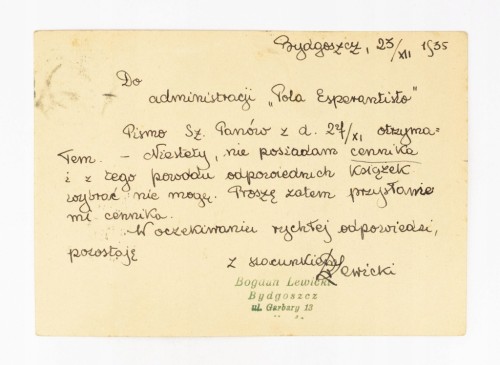 Bydgoszcz, 23/XII 1935
Do
administracji „Pola Esperantisto"
Pismo Sz. Panów z d. 27/XI otrzyma=
łem. – Niestety, nie posiadam cennika
i z tego powodu odpowiednich książek
wybrać nie mogę. Proszę zatem przysłanie
mi cennika.
W oczekiwaniu rychłej odpowiedzi,
pozostaję
z szacunkiem
Lewicki
Bogdan Lewicki
Bydgoszcz
ul. Garbary 13